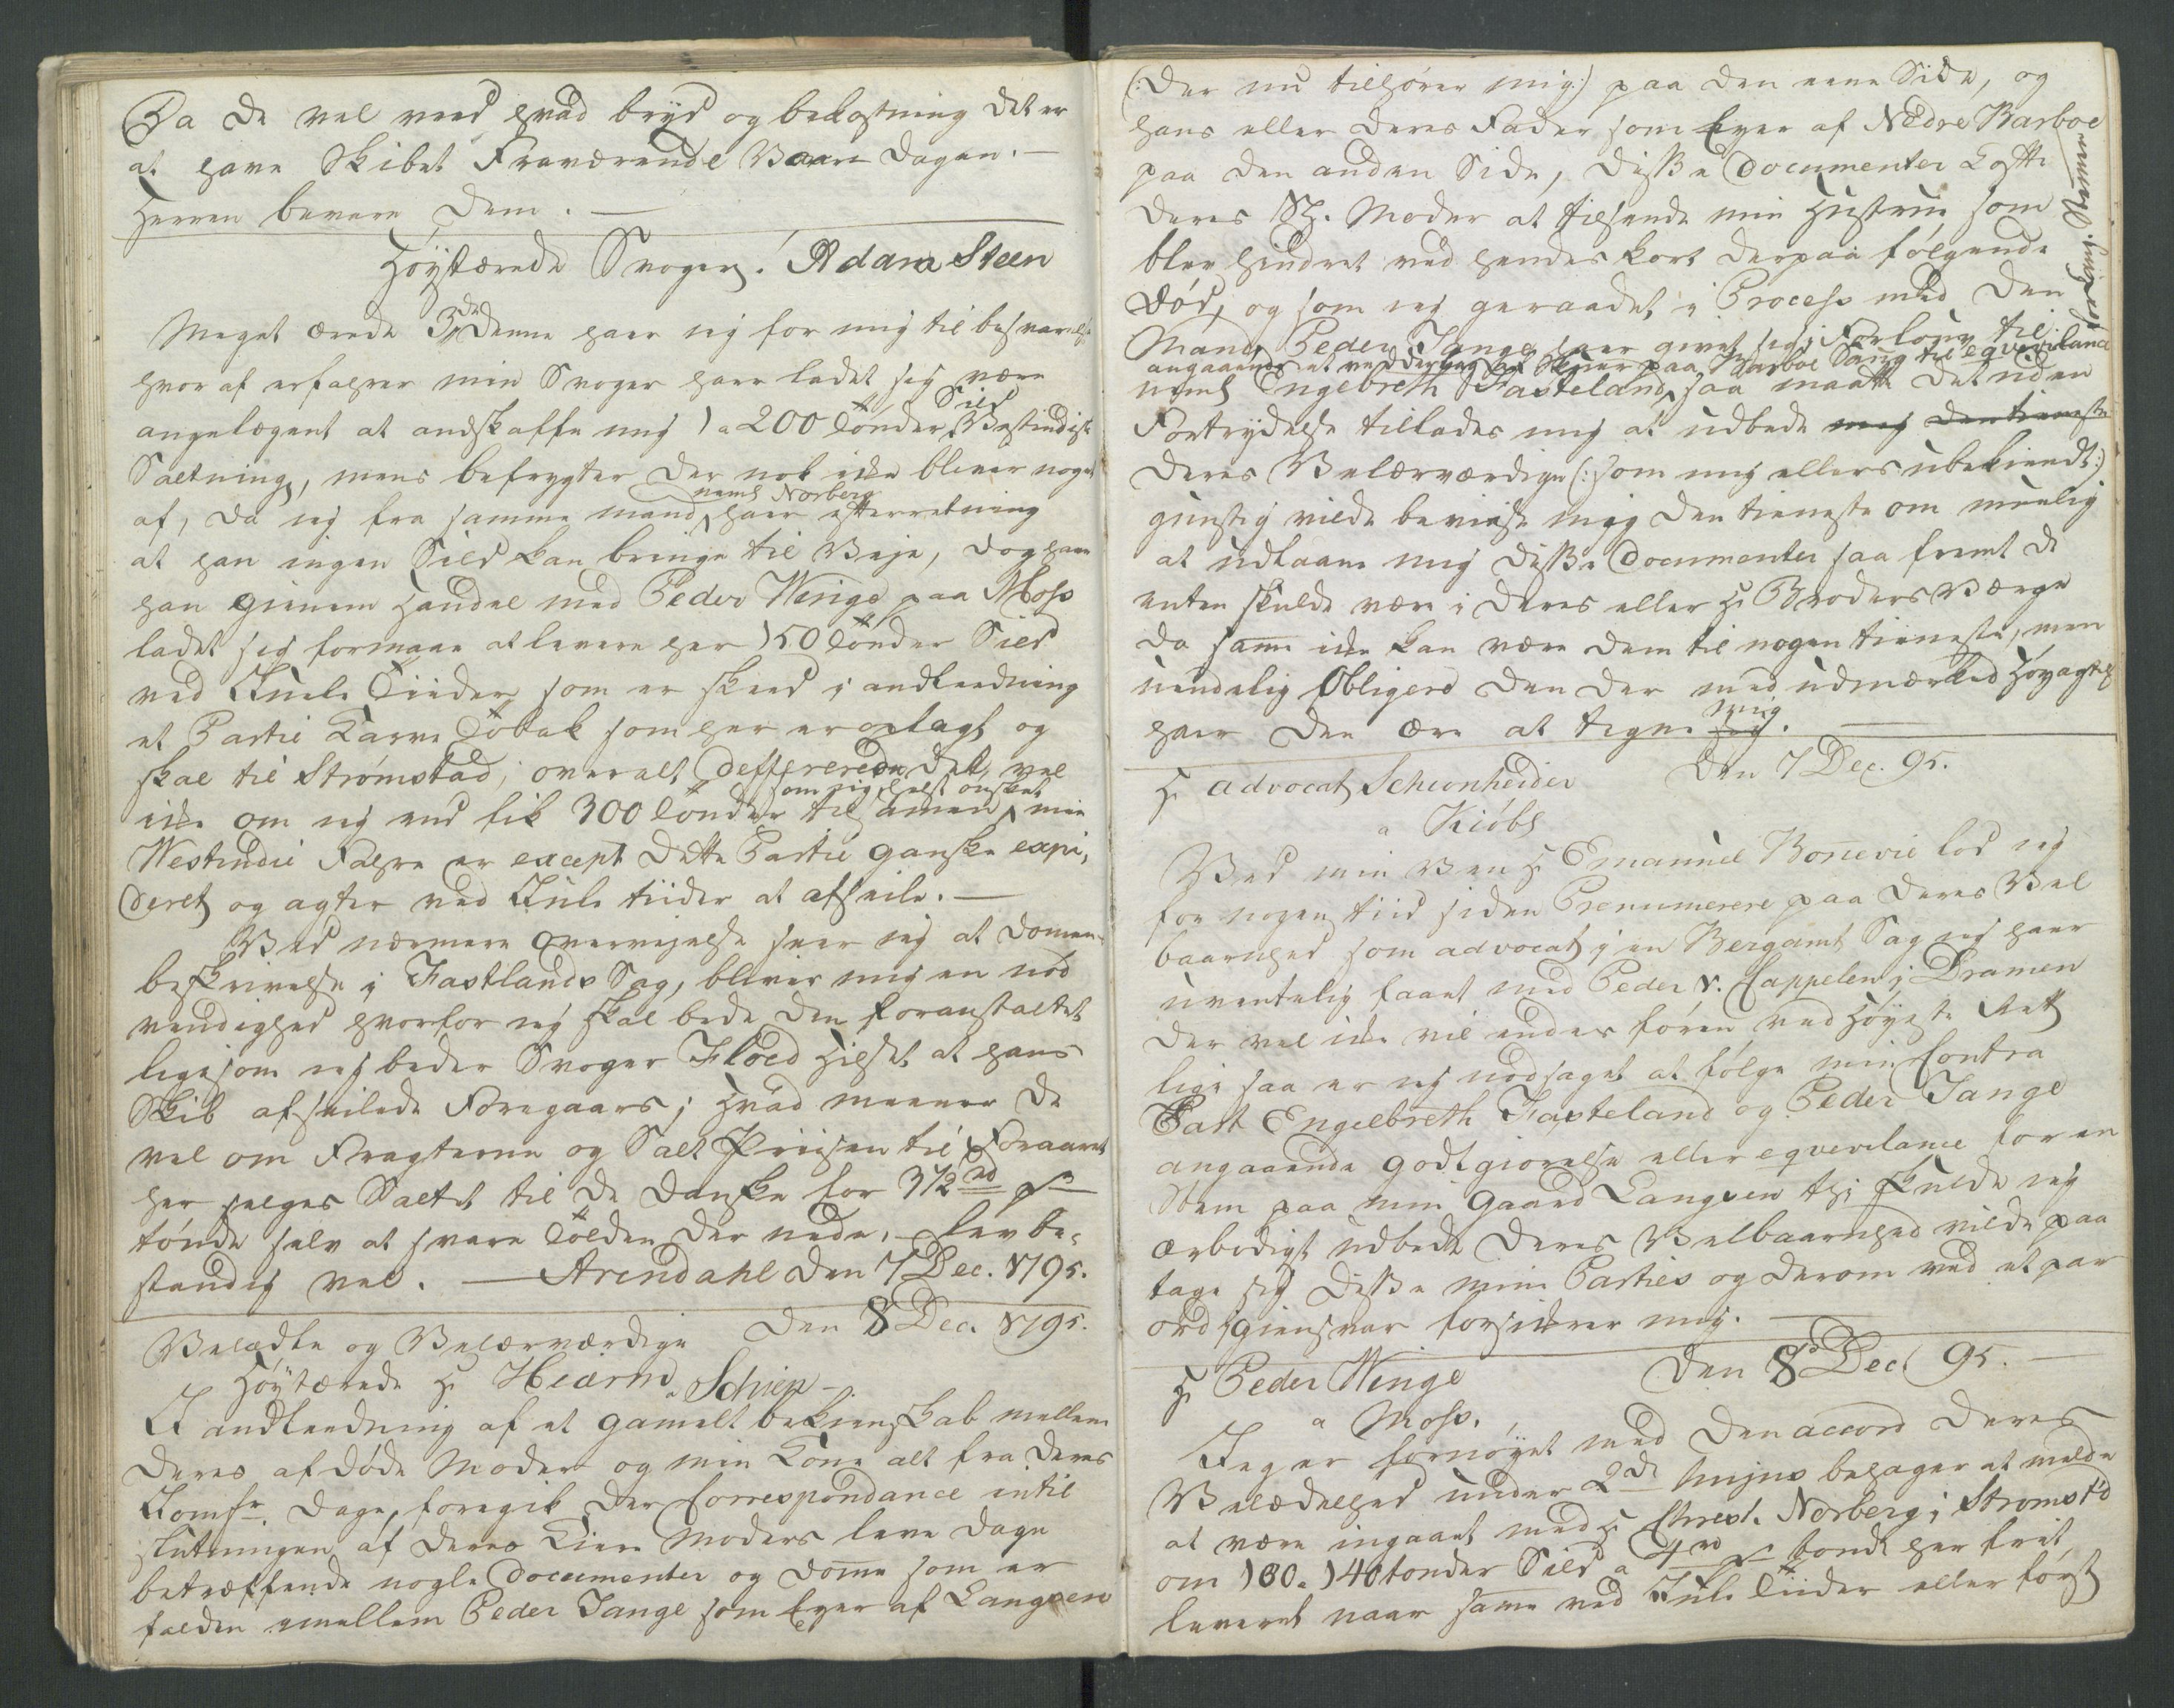 Da De vel veed hvad bryd og bekostning det er
at have Skibet Fraværende Vaare Dagen. —
Herren bevare Dem. —
Höystærede Svoger! Adam Steen
Meget ærede 3de Denne haer jeg for mig til besvarelse
hvor af erfahrer min Svoger haer ladet sig være
angelægent at andskaffe mig 1 a 200 Tönder Sild Vestindisk
Saltning, mens befrygter der nok icke bliver noget
af, da jeg fra samme mand neml Norberg haer efterretning
at han ingen Sild kan bringe til Veje, dog haer
han gienem Handel med Peder Winge paa Moss
ladet sig formaae at levere her 150 Tönder Sild
ved Juule Tiider, som er skeed i andleedning
et Partie Karve Tobak som her er oplagt og
skal til Strömstad, overalt deffererede det vel
icke om jeg end fik 300 Tönder til samen som jeg helst onsket min
Westindie Fahre er except dette Partie ganske expi,
deret og agter ved Jule tiider at afseile. —
Ved nærmere Overvejelse seer jeg at Domen-
beskrivelse i Fastlands Sag, bliver mig en nöd
vendighed hvorfor jeg skal bede den foranstaltet
ligesom jeg beder Svoger Flöed hilset at hans
Skib afseilede Foregaars; hvad meener De
vel om Fragterne og Salt Priisen til Foraaret
her selges Saltet til de Danske for 3 1/2 rd pr
tönde selv at svare Tolden der nede. — lev be-
standig vel. — Arendahl den 7 Dec. 1795.
Velædle og Velærværdige Den 8 Dec. 1795.
Höytærede Hr Heiarm a Schien —
I andleedning af et gamelt bekienskab mellem
Deres afdöde Moder og min Kone alt fra Deres
Jomfr. Dage, foregik der Correspondance intil
slutningen af Deres Kiere Moders leve Dage
betræffende nogle Documenter og Dome som er
falden emellem Peder Tange som Eyer af Langsen
(: Der nu tilhörer mig:) paa den eene Side, og
hans eller Deres Fader som Eyer af Nedre Barboe
paa den anden Side, disse Documenter Loffte
Deres Sl. Moder at tilsende min Hustrue som
blev hindret ved hendes kort derpaa fölgende
Död, og som jeg geraadet i Process med den
Mand, Peder Tange haer givet sig i Forlouv til
angaaende et ved Dæmning af Stemer paa Barboe Saug til eqvevilance
neml Engebreth Fasteland, saa maatte det uden
Fortrydelse tillades mig at udbede mig den tieneste
Deres Velærværdige (: som mig ellers ubekiendt:)
gunstig vilde beviise mig den tieneste om muelig
at udlaane mig disse Documenter saa fremt de
enten skulde være i Deres eller Hr Broders Værge
da same icke kan være Dem til nogen tieneste, men
uendelig Obligere den der med udmærked Höyagtelse
haer den Ære at tegne mig. —
Hr advocat Scheonheider Den 7 Dec. 95.
a Kiöbh
Ved min Ven Hr Emanuel Bonevie lod jeg
for nogen tiid siden Prenumerere paa Deres Vel
baarnhed som advocat i en Bergamt Sag jeg haer
uventelig faaet med Peder v. Cappelen i Dramen
der vel icke vil endes fören ved Höyeste Rett
lige saa er jeg nödsaget at fölge min Contra
Part Engelbreth Fasteland og Peder Tange
angaaende godtgiorelse eller eqvevilance for en
Stem paa min Gaard Langsen thi skulde jeg
ærbodigst udbede Deres Velbaarnhed vilde paa
tage sig disse mine Parties og derom ved et par
ord sgiensvar forsickrer mig. —
Hr Peder Winge Den 8de Dec 95. —
a Moss.
Jeg er fornöyet med den accord Deres
Velædelhed under 2de hujus behager at melde
at være ingaaet med Hr Chrest. Norberg i Stromst'd
om 130 a 140 tonder Sild a 4 rd pr tonde her frit
leveret naar same ved Jule Tiider eller först